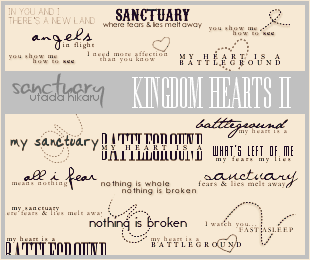 IN YOU AND I
THERE'S A NEW LAND
SANCTUARY
where fears & lies melt away
you show me
how to see
angels
in flight
you show me
how to see
I need more affection
than you know
MY HEART IS A
BATTLEGROUND
sanctuary
utada hikaru
KINGDOM HEARTS II
battleground
my heart is a
my sanctuary
MY HEART IS A
BATTLEGROUND
WHAT'S LEFT OF ME
my fears my lies
all i fear
means nothing
nothing is whole
nothing is broken
sanctuary
fears & lies melt away
my sanctuary
ere fears & lies melt away
nothing is broken
I watch you...
FAST ASLEEP
my heart is a
BATTLEGROUND
my heart is a
BATTLEGROUND